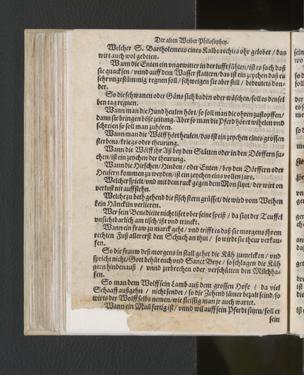 Der alten Weiber Philosophey.
Welcher S. Bartholomeus eines Kalbs rechtes ohr gelobet / das
wirt auch wol gedeien.
Wann die Enten ein ungewitter in der lufft fühlen / ist es sach daß
sie quackſen / und auff dem Wasser flattern / das ist ein zeychen daß es
sehr ungestümmig regnen soll / schweigen sie aber still / bedeutets don-
der.
So die schwanen oder Gäns sich baden oder wäschen / soll es densel
ben tag regnen.
Wann man die Hund heulen hört / so soll man die ohren zustopffen /
dann sie bringen böse zeitung. Aber so man die Pferd hört wihelen und
schreien so soll man zuhören.
Wann man die Wölff hört heulen / das ist ein zeychen eines grossen
sterbens / kriegs oder theurung.
Wann die Wölff ihr Aß bey den Stätten oder in den Dörffern su-
chen / ist ein zeychen der theurung.
Wann die Hirschen / Hinden / oder Enten / bey den Dörffern oder
Heusern kommen zu weyden / ist ein zeychen eins vollen jars.
Welcher spielt / und mit dem ruck gegen dem Mon sitzet / der wirt on
verlust nit auffstehn.
kein Hüncklin verlieren.
Wer sein Benedicite nicht liset oder seine speiß / da sitzt der Teuffel
unsichtbarlich am tisch / ißt und trinckt.
Wann ein fraw zu marck geht / und trifft es daß sie morgens ihrem
rechten Fuß aller erst den Schuch anthut / so wirdt sie theur verkau-
fen.
So die frauw deß morgens in stall gehet die Küh zu melcken / und
spricht nicht / Gott behüt euch und Sanct Breye / so schlagen die Küh
gern hinden auß / und zerbrechen oder verschütten den Milchha-
fen.
So man dem Wolff sein Lamb auß dem grossen Hofe / da viel
Schaaff außgehn / nicht sendet / so die Zehend lämer bezalt seind / so
wirts der Wolff selbs nemen / wie fleissig man jr auch wartet.
Wann ein Mal fertig ist / unnd will auff sein Pferde sitzen / soll er
sein